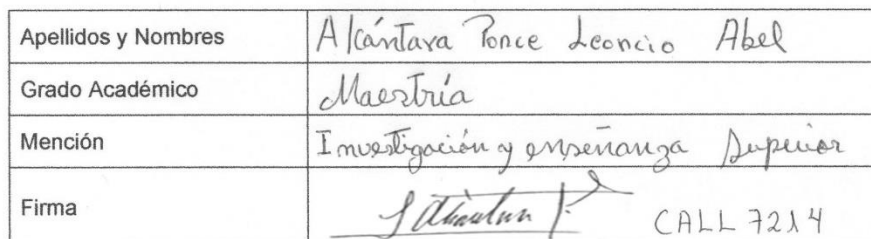 Apellidos y Nombres Alcántara Ponce Leoncio Abel
Grado Académico Maestría
Mención Investigación y enseñanza Superior
Firma CALL 7214